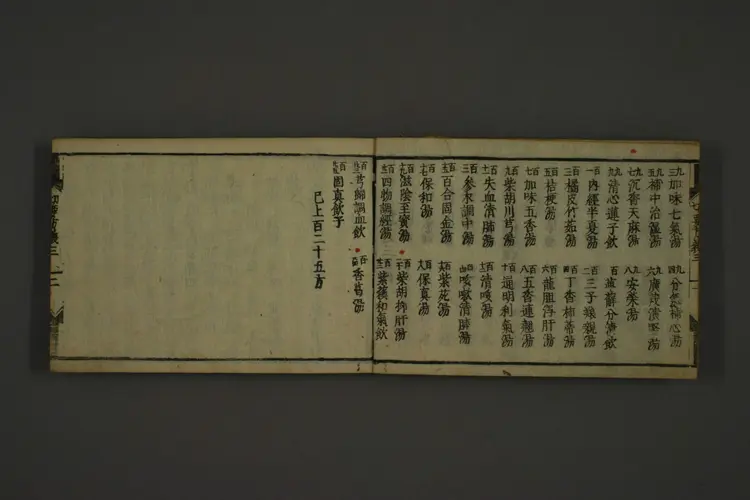 九三 加味七氣湯 九四 分氣補心湯
九五 補中治濕湯 九六 廣茂潰堅湯
九七 沉香天麻湯 九八 安榮湯
九九 清心蓮子飲 百 萆薢分清飲
百一 內經半夏湯 百二 三子養親湯
百三 橘皮竹茹湯 百四 丁香柿蒂湯
百五 桔梗湯 百六 龍膽瀉肝湯
百七 加味五香湯 百八 五香連翹湯
百九 柴胡川芎湯 百十 通明利氣湯
百十一 失血清肺湯 百十二 清咳湯
百十三 參朮調中湯 百十四 咳嗽清肺湯
百十五 百合固金湯 百十六 紫菀湯
百十七 保和湯 百十八 保真湯
百十九 滋陰至寶湯 百二十 柴胡抑肝湯
四物調經湯 紫蘇和氣飲
芎歸調血飲 香葛湯
固真飲子
已上百二十五方